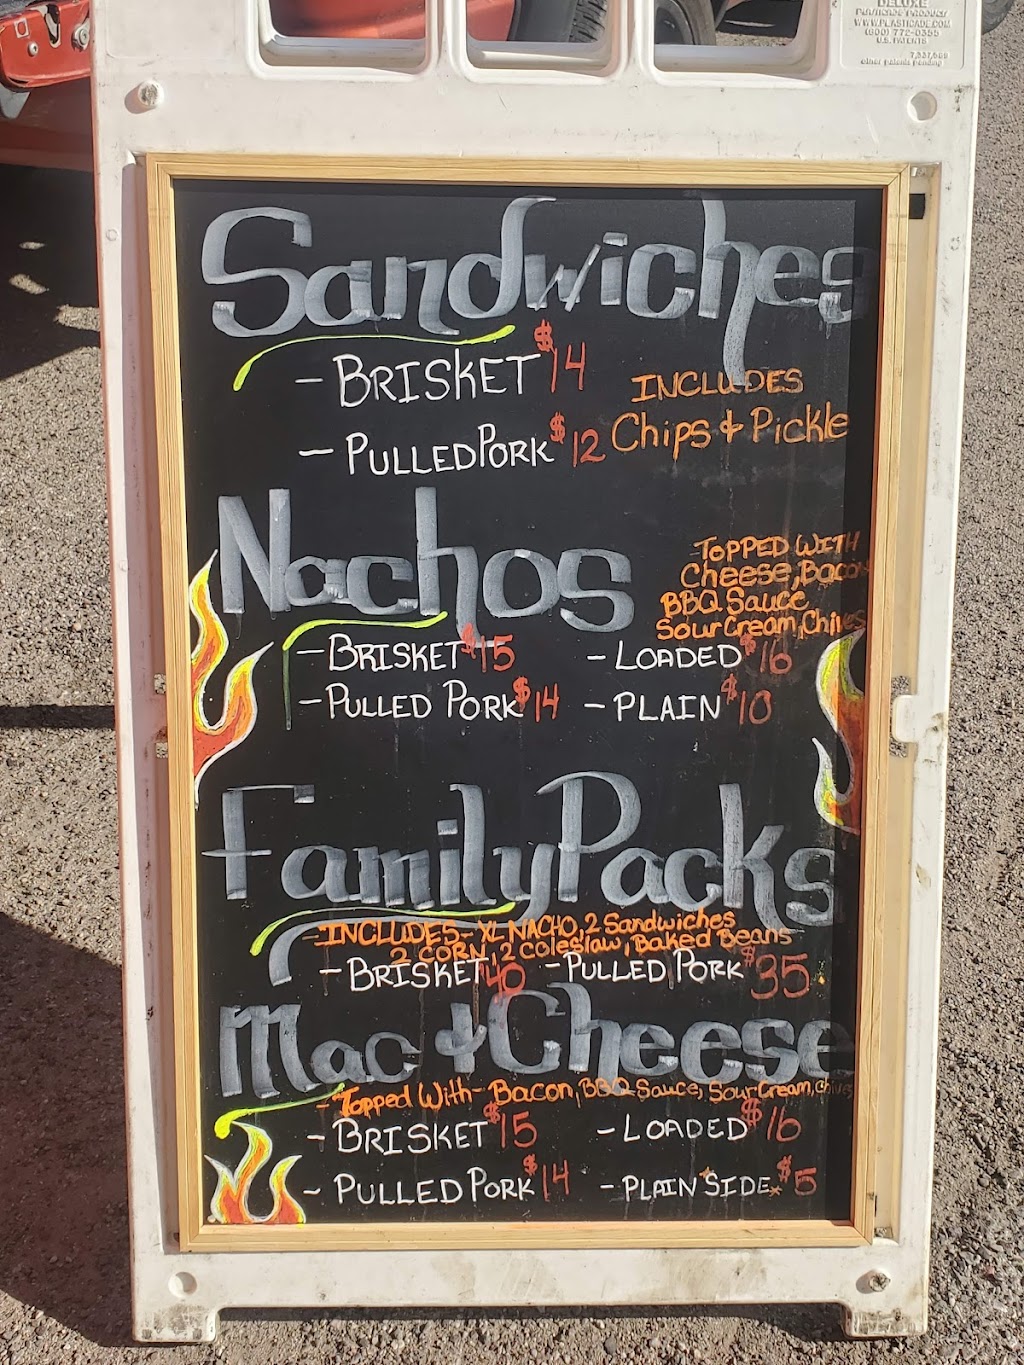 DELUXE
PLASTICADE PRODUCT
WWW.PLASTICADE.COM
(800) 772-0355
U.S. PATENTS
7,337,569
other patents pending
Sandwiches
- BRISKET $14
- PULLED PORK $12
INCLUDES
Chips & Pickle
Nachos
TOPPED WITH
Cheese, Bacon
BBQ Sauce
Sour Cream, Chives
- BRISKET $15
- LOADED $16
- PULLED PORK $14
- PLAIN $10
Family Packs
- INCLUDES - XL NACHO, 2 Sandwiches
2 CORN, 2 Coleslaw, Baked Beans
- BRISKET $40
- PULLED PORK $35
Mac & Cheese
- Topped With - Bacon, BBQ Sauce, Sour Cream, chives
- BRISKET $15
- LOADED $16
- PULLED PORK $14
- PLAIN *SIDE* $5